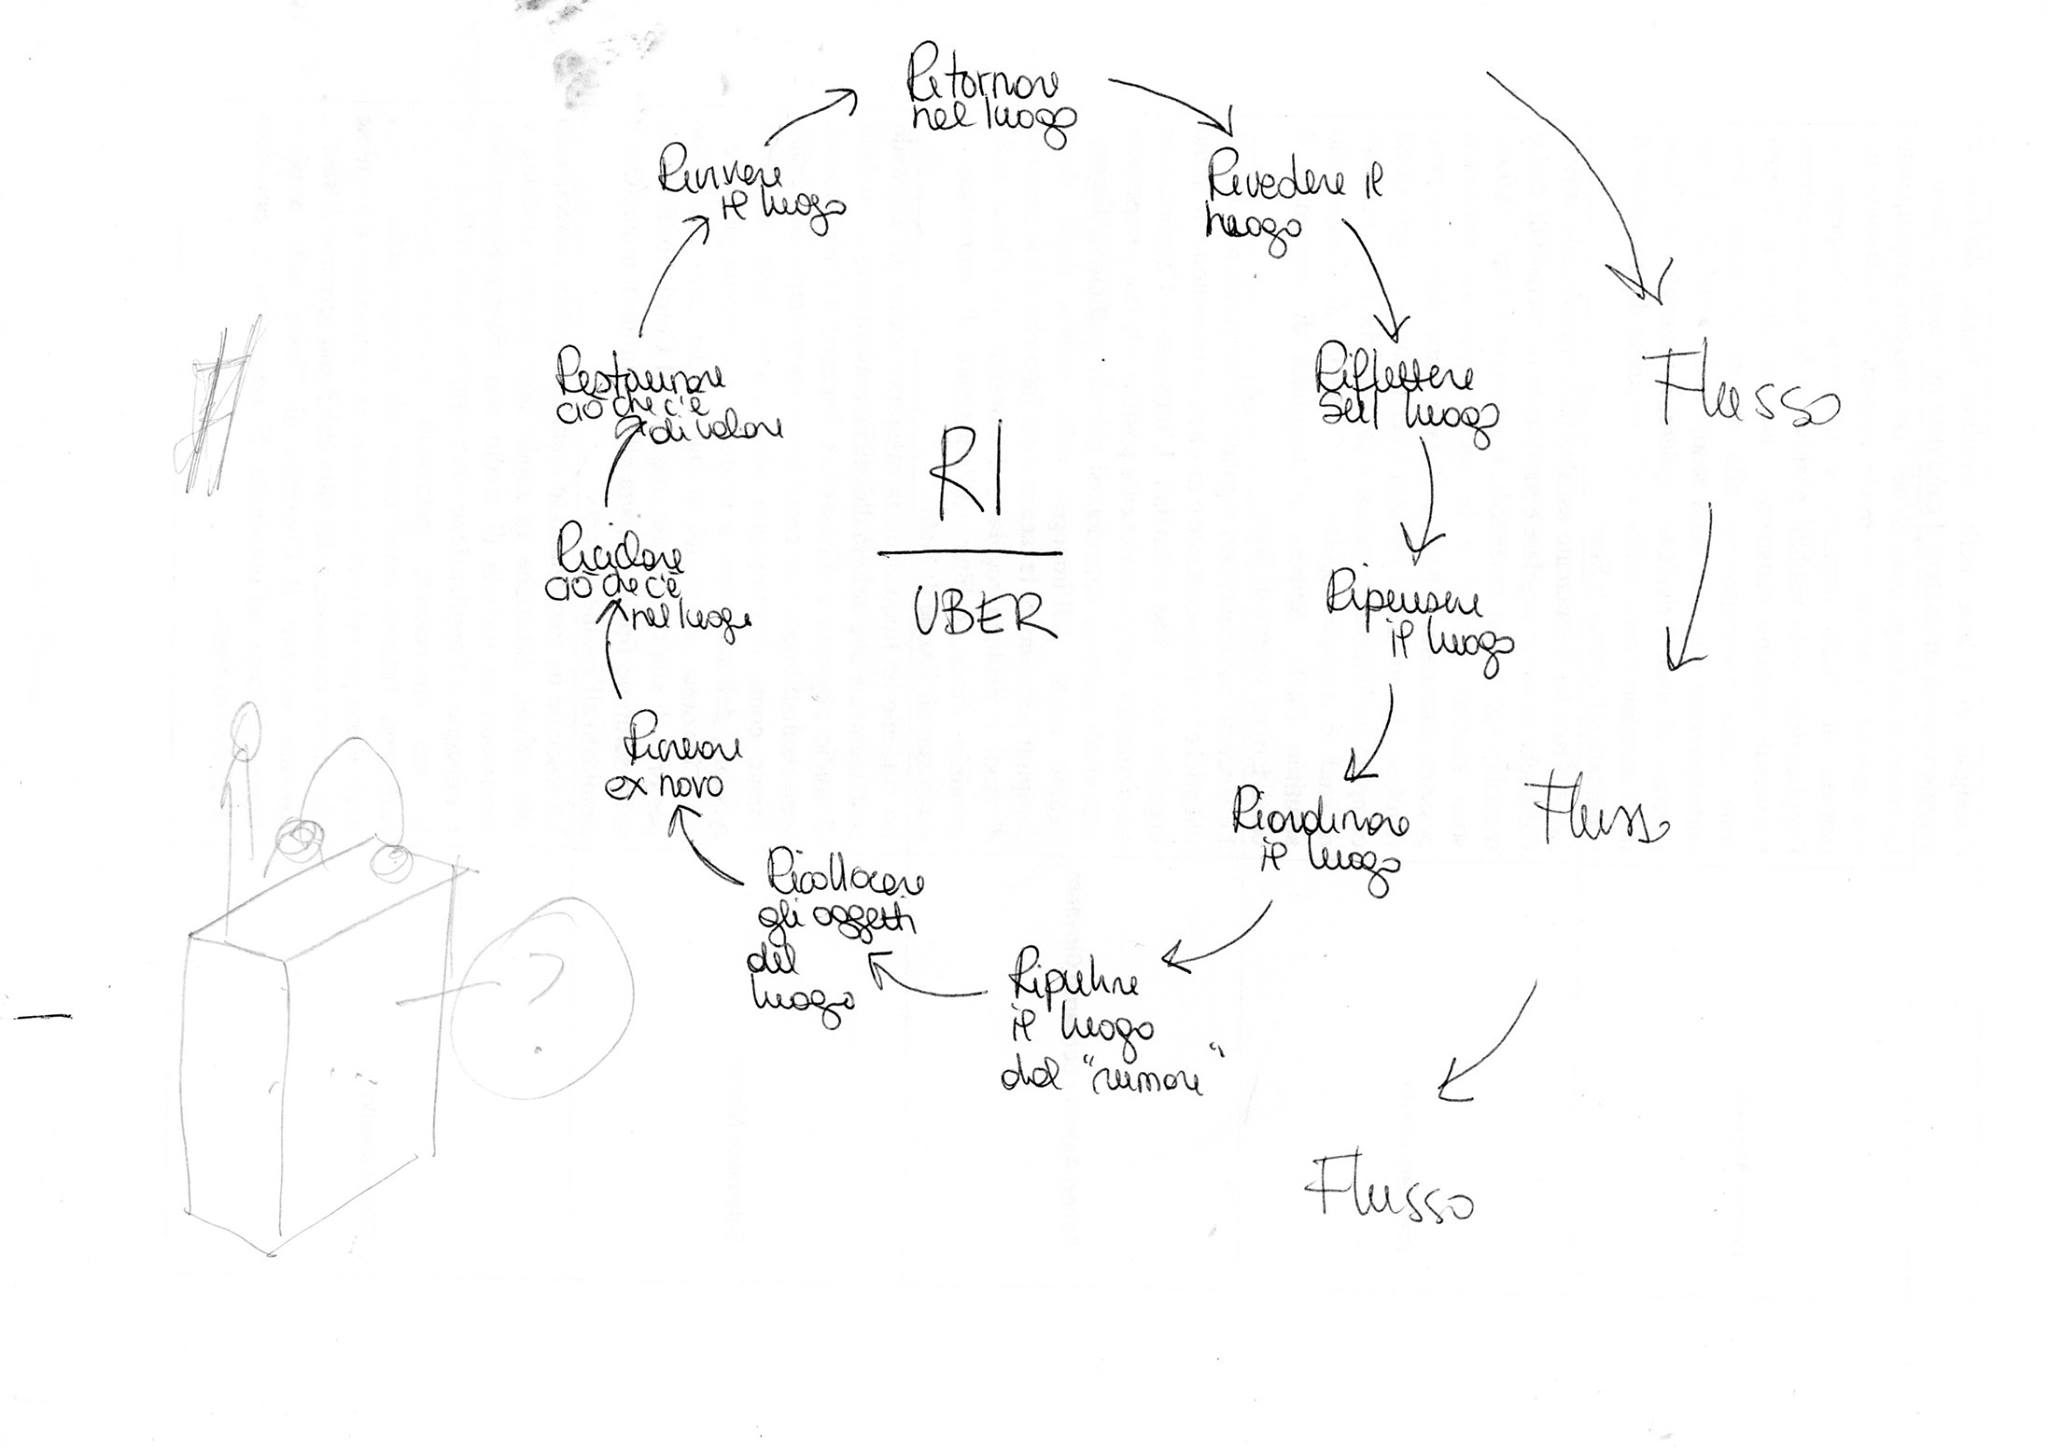 Ritornare
nel luogo
Rivedere il
luogo
Riflettere
sul luogo
Ripensare
il luogo
Riordinare
il luogo
Ripulire
il luogo
dal "rumore"
Ricollocare
gli oggetti
del
luogo
Ricreare
ex novo
Riciclare
ciò che c'è
nel luogo
Restaurare
ciò che c'è
di valore
Rivivere
il luogo
RI
UBER
Flusso
Flusso
Flusso
?